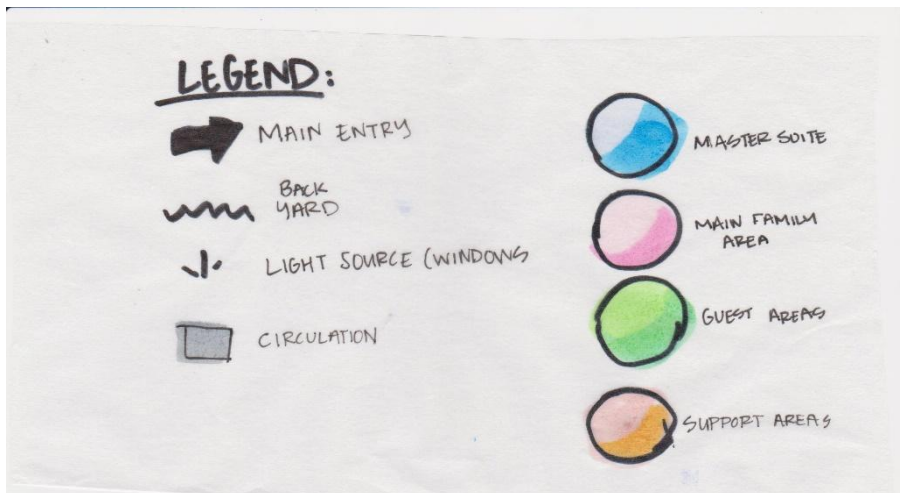 LEGEND:
MAIN ENTRY
BACK
YARD
LIGHT SOURCE (WINDOWS
CIRCULATION
MASTER SUITE
MAIN FAMILY
AREA
GUEST AREAS
SUPPORT AREAS